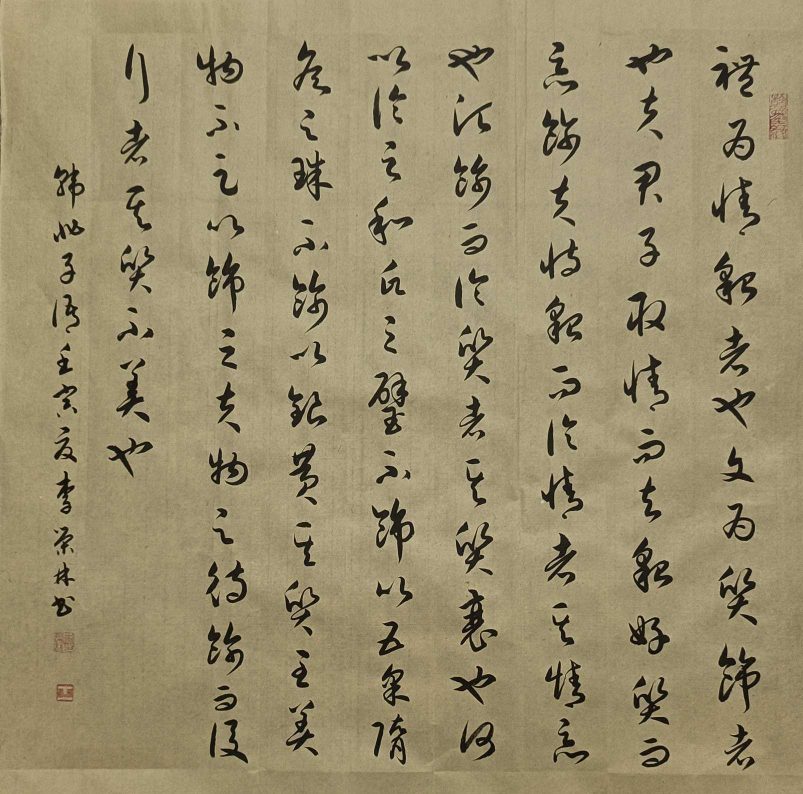 禮為情貌者也文為質飾者
也夫君子取情而去貌好質而
惡飾夫恃貌而論情者其情惡
也須飾而論質者其質衰也何
以論之和氏之璧不飾以五采隋
侯之珠不飾以銀黄其質至美
物不足以飾之夫物之待飾而後
行者其質不美也
韓非子語壬寅夏李榮林書